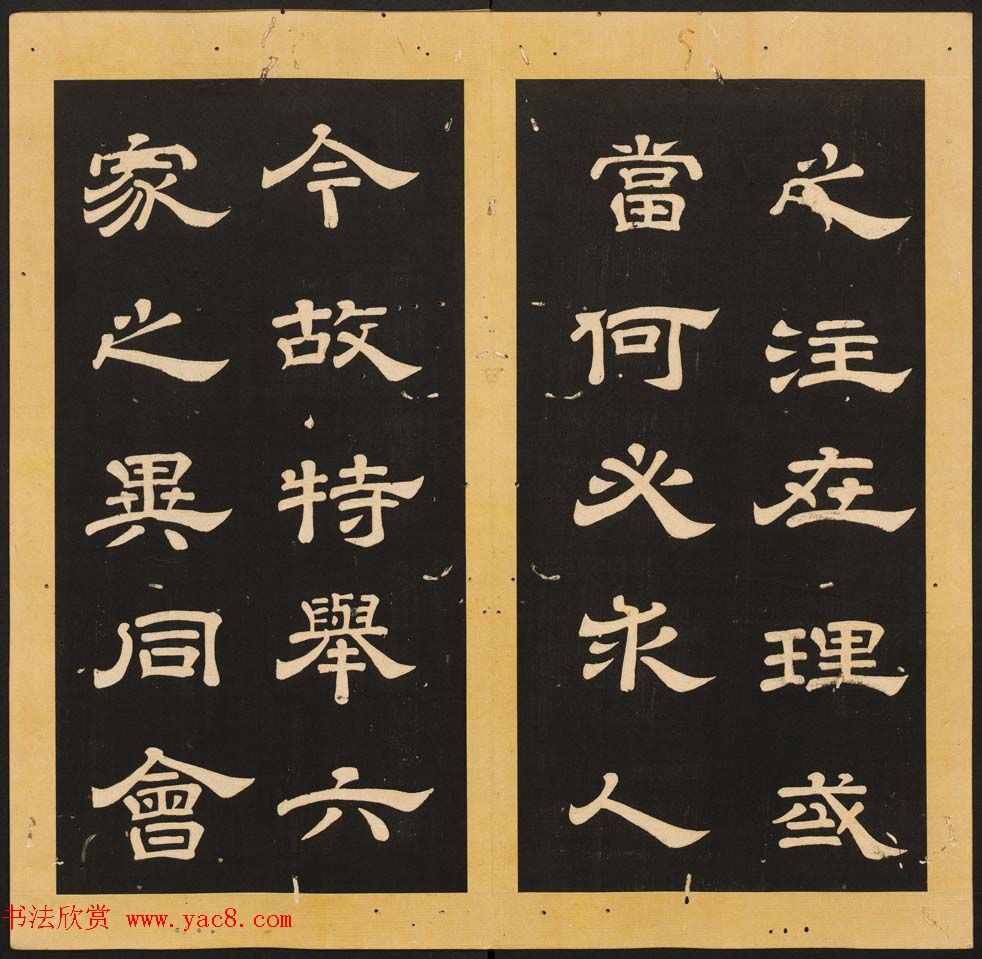 之注在理或
當何必求人
今故特舉六
家之異同會
书法欣赏 www.yac8.com